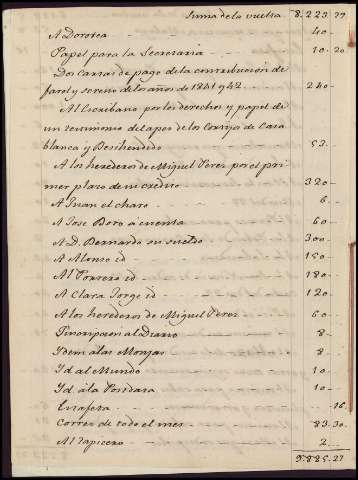 Suma de la vuelta 8.223.27
A Dororea 40
Papel para la Secretaria 10.20
Dos cartas de pago de la contribucion de
farol y sereno de los años de 1841 y 42 240
Al Escribano por los derechos y papel de
un testimonio de apeo de los Cortijos de Casa
blanca y 53
A los herederos de Miguel Peres por el pri-
mer plazo de su credito 320
A Juan el charo 6
A Jose Boro á cuenta 60
A D. Bernardo su sueldo 300
A Alonso id 150
Al Porrero id 180
A Clara Jorge id 120
A los herederos de Miguel Peres 60
Suscripcion al Diario 8
Ydem á las Monjas 8
Yd al Mundo 10
Yd á la Posdata 10
Estafeta 16
Correo de todo el mes 83.30
Al tapicero 2
9.885.27